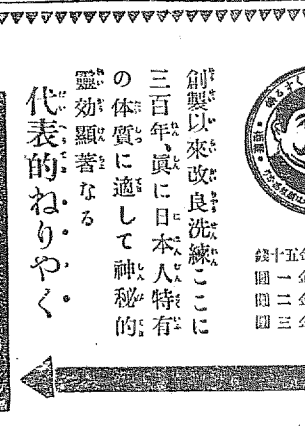 創製以來改良洗練ここに
三百年、眞に日本人特有
の体質に適して神秘的
靈効顯著なる
代表的ねりやく
五十錢
一圓
二圓
三圓